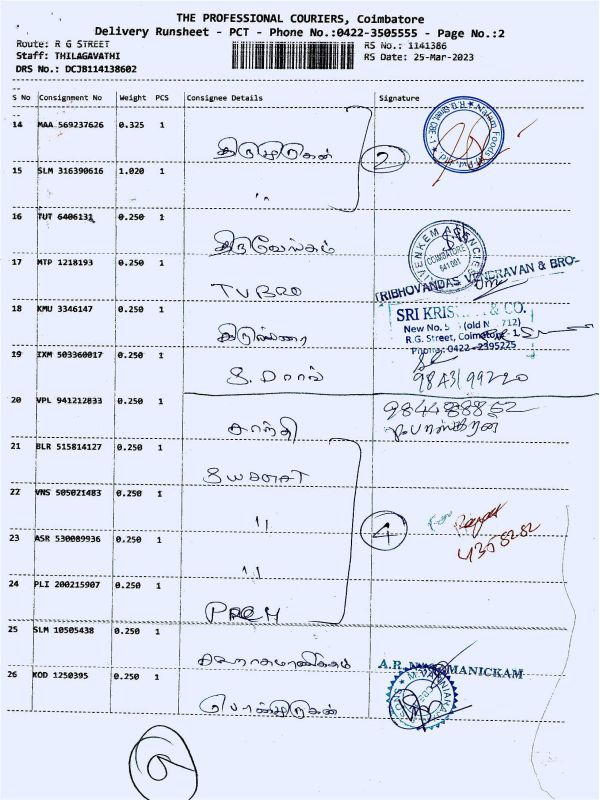 THE PROFESSIONAL COURIERS, Coimbatore
Delivery Runsheet - PCT - Phone No.:0422-3505555 - Page No.:2
Route: R G STREET
RS No.: 1141386
Staff: THILAGAVATHI
RS Date: 25-Mar-2023
DRS No.: DCJB114138602
S No Consignment No Weight PCS Consignee Details Signature
14 MAA 569237626 0.325 1
திருமுருகன் 2
15 SLM 316390616 1.020 1
"
16 TUT 6406131 0.250 1
திருவேங்கடம்
VENKEM AGENCIES
COIMBATORE
641 001
17 MTP 1218193 0.250 1
TVBRO
TRIBHOVANDAS VENDRAVAN & BRO-
18 KMU 3346147 0.250 1
SRI & CO.
New No. (old N 712)
R.G. Street, Coimbatore - 1.
Phone: 0422 - 2395225
19 IXM 503360017 0.250 1
9843199220
20 VPL 941212833 0.250 1
சாந்தி
9844888852
21 BLR 515814127 0.250 1
22 VNS 505021483 0.250 1
"
4
23 ASR 530089936 0.250 1
"
4358282
24 PLI 200215907 0.250 1
25 SLM 10505438 0.250 1
A.R. MANICKAM
26 KOD 1250395 0.250 1
பொன்முருகன்